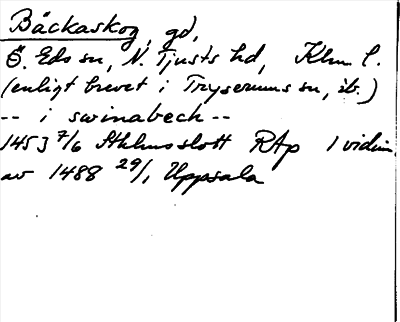 Bäckaskog, gd,
Ö. Eds sn, N. Tjusts hd, Klm l.
(enligt brevet i Tryserums sn, ib.)
-- i swinabech --
1453 7/6 Sthlms slott RAp 1 vidim.
av 1488 29/1 Uppsala